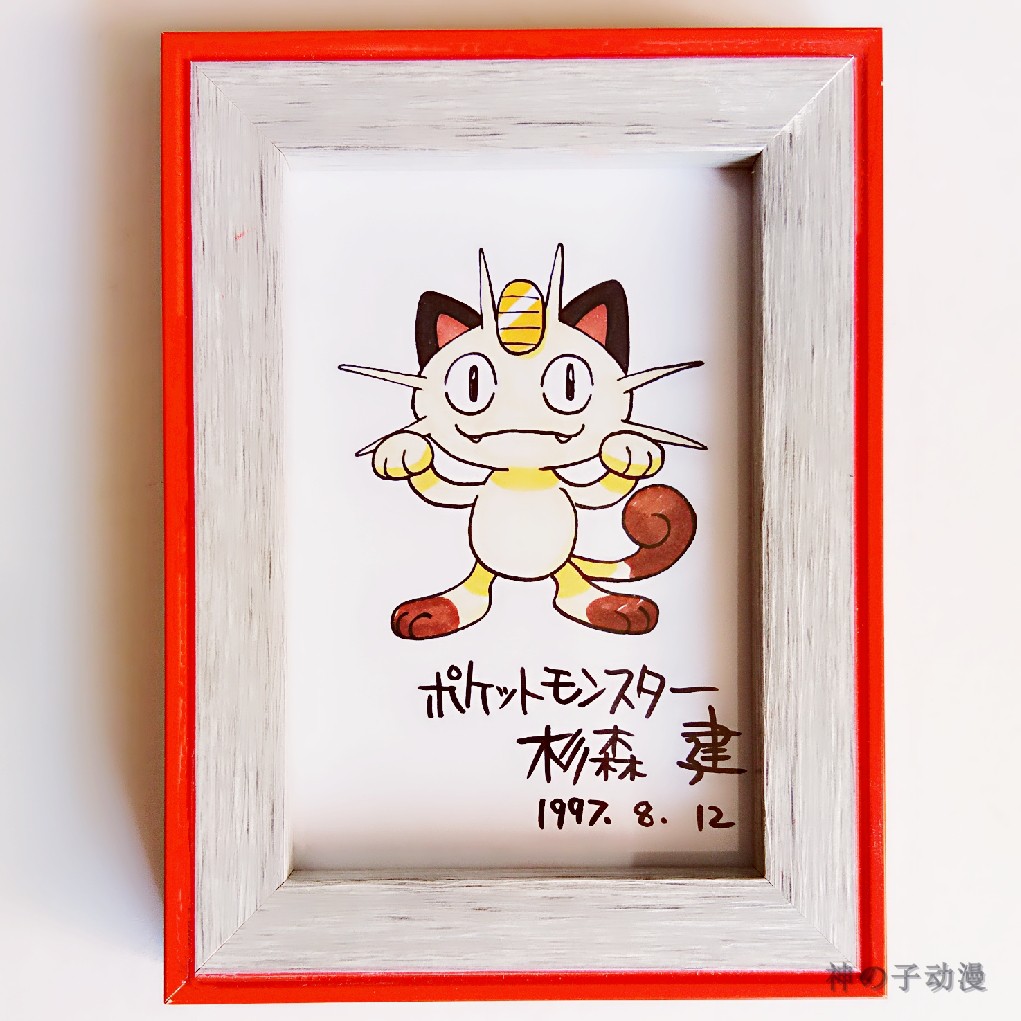 ポケットモンスター
杉森 建
1997. 8. 12
神の子动漫